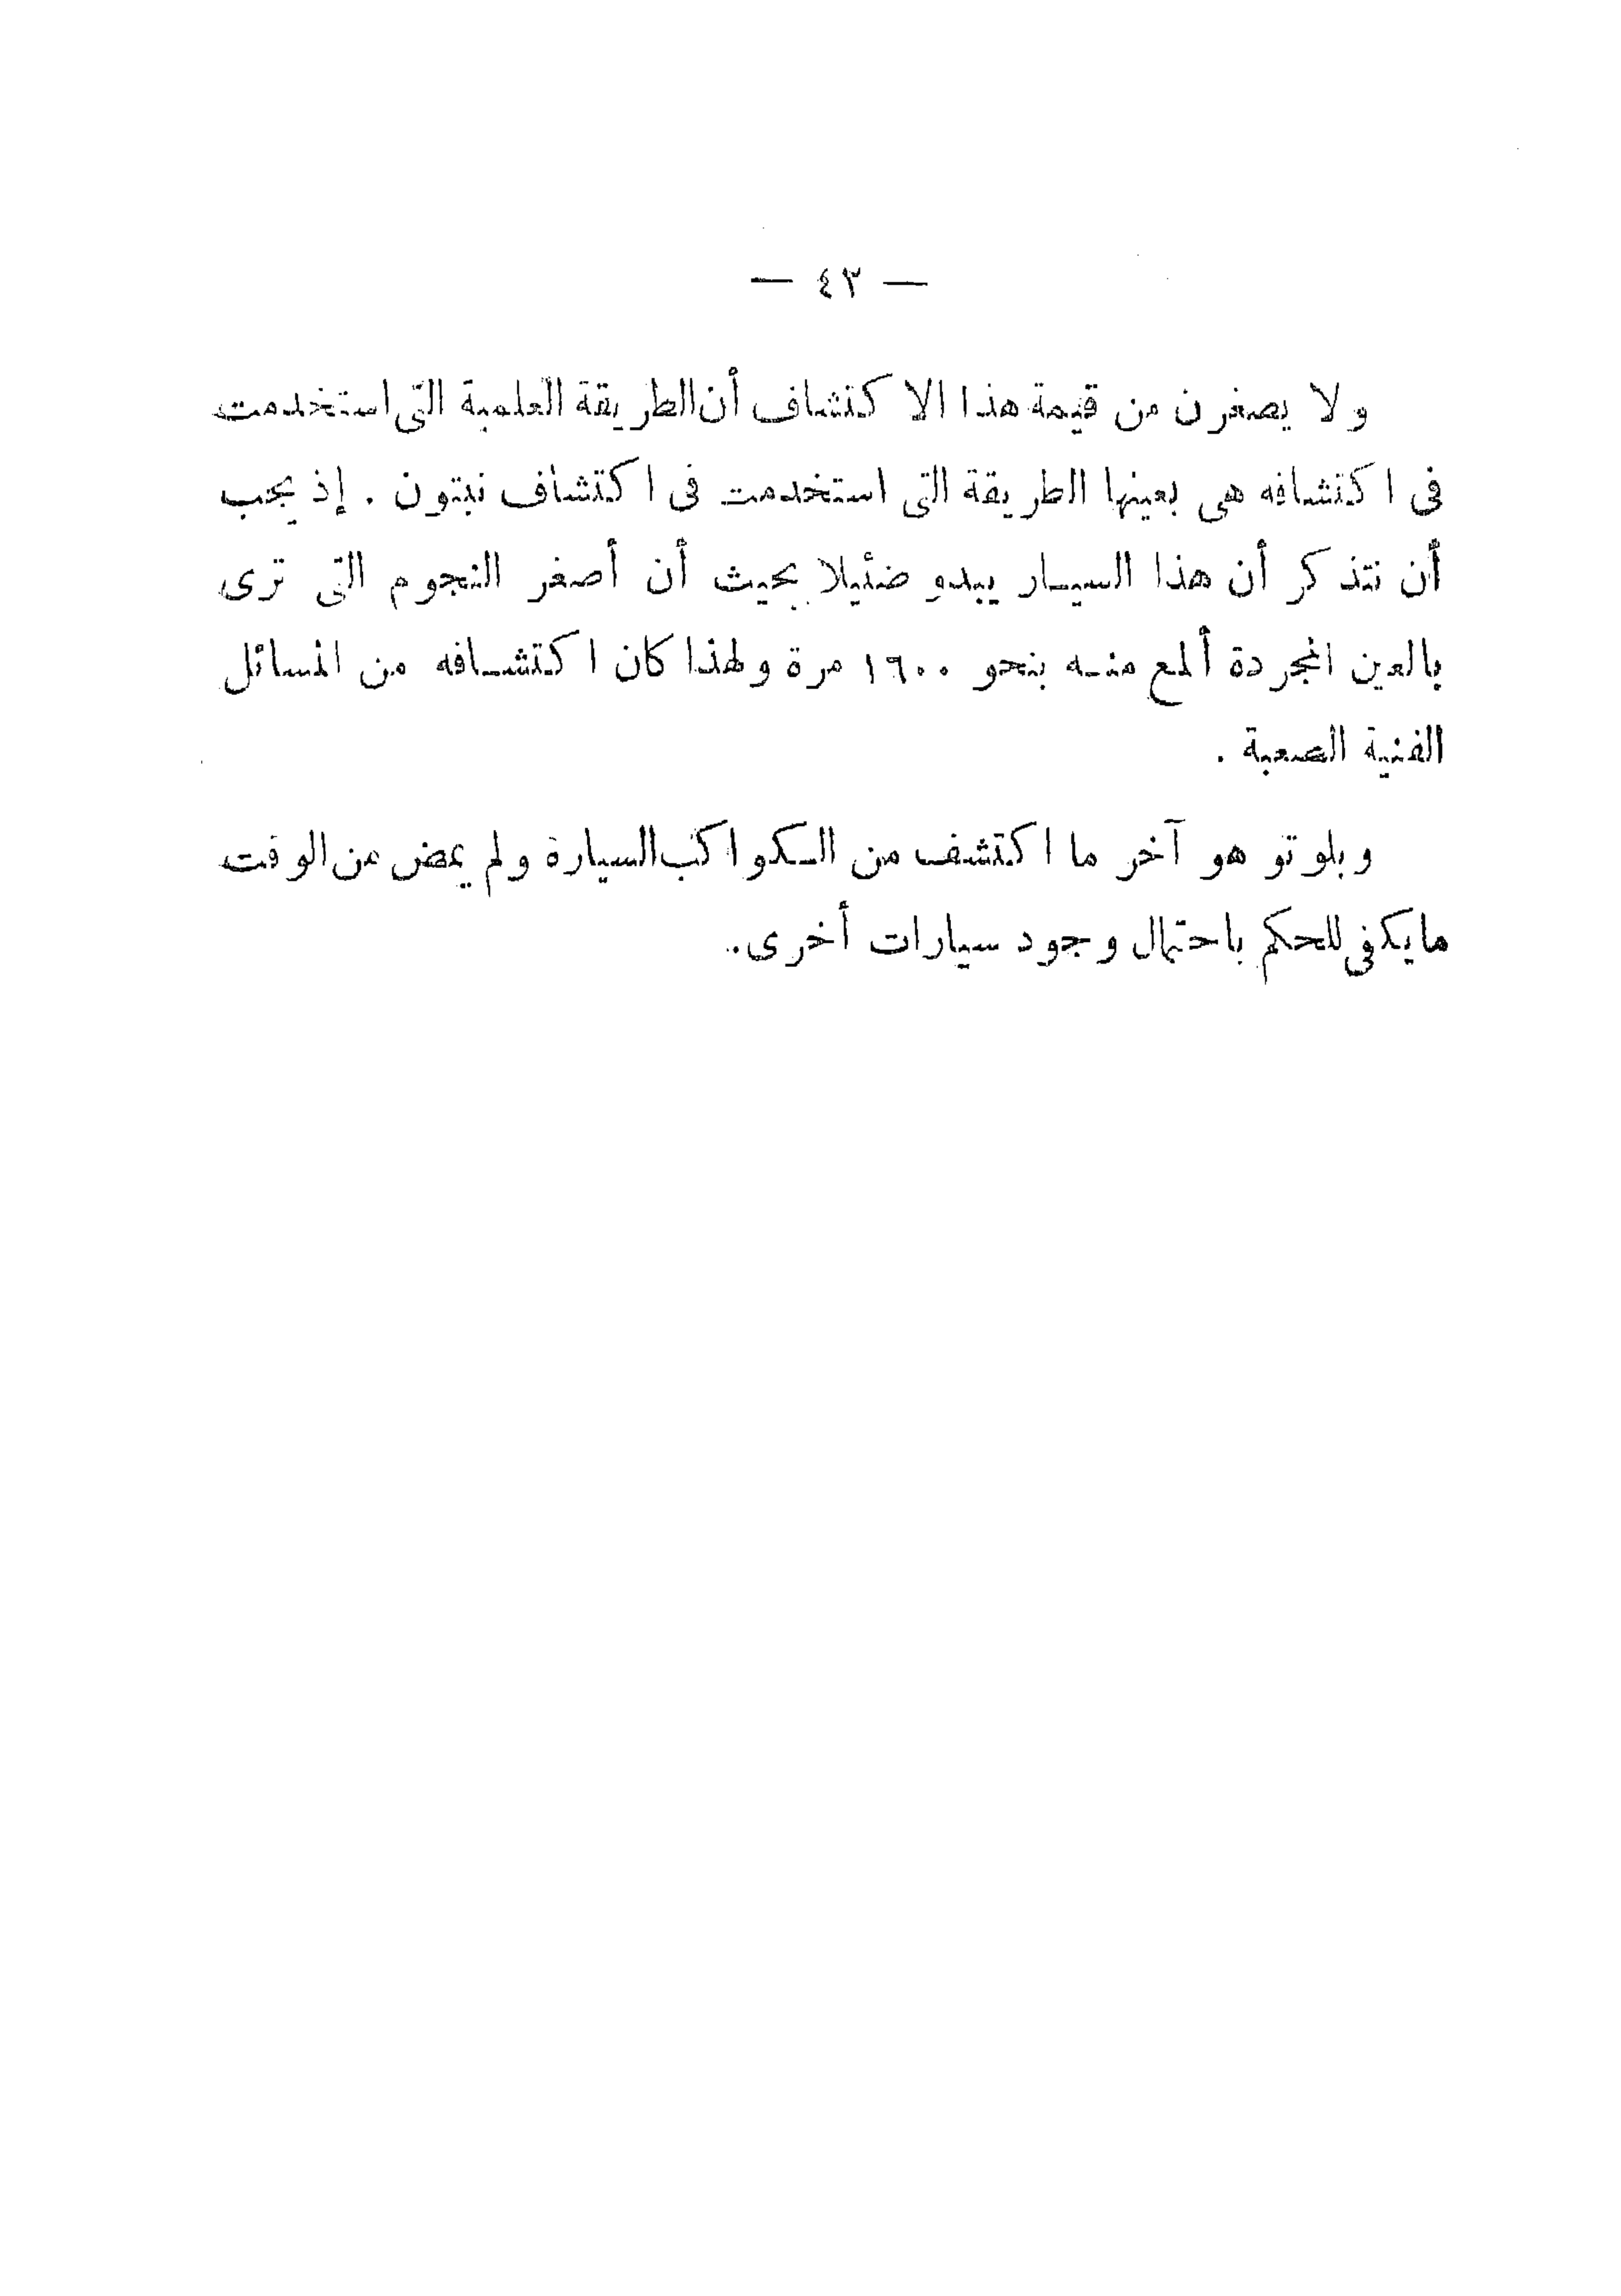 — ٤٣ —
ولا يصغرن من قيمة هذا الاكتشاف أن الطريقة العلمية التى استخدمت
فى اكتشافه هى بعينها الطريقة التى استخدمت فى اكتشاف نبتون . إذ يجب
أن نتذكر أن هذا السيار يبدو ضئيلا بحيث أن أصغر النجوم التى ترى
بالعين المجردة ألمع منه بنحو ١٦٠٠ مرة ولهذا كان اكتشافه من المسائل
الفنية الصعبة .
وبلوتو هو آخر ما اكتشف من الكواكب السيارة ولم يمض من الوقت
ما يكفى للحكم باحتمال وجود سيارات أخرى .